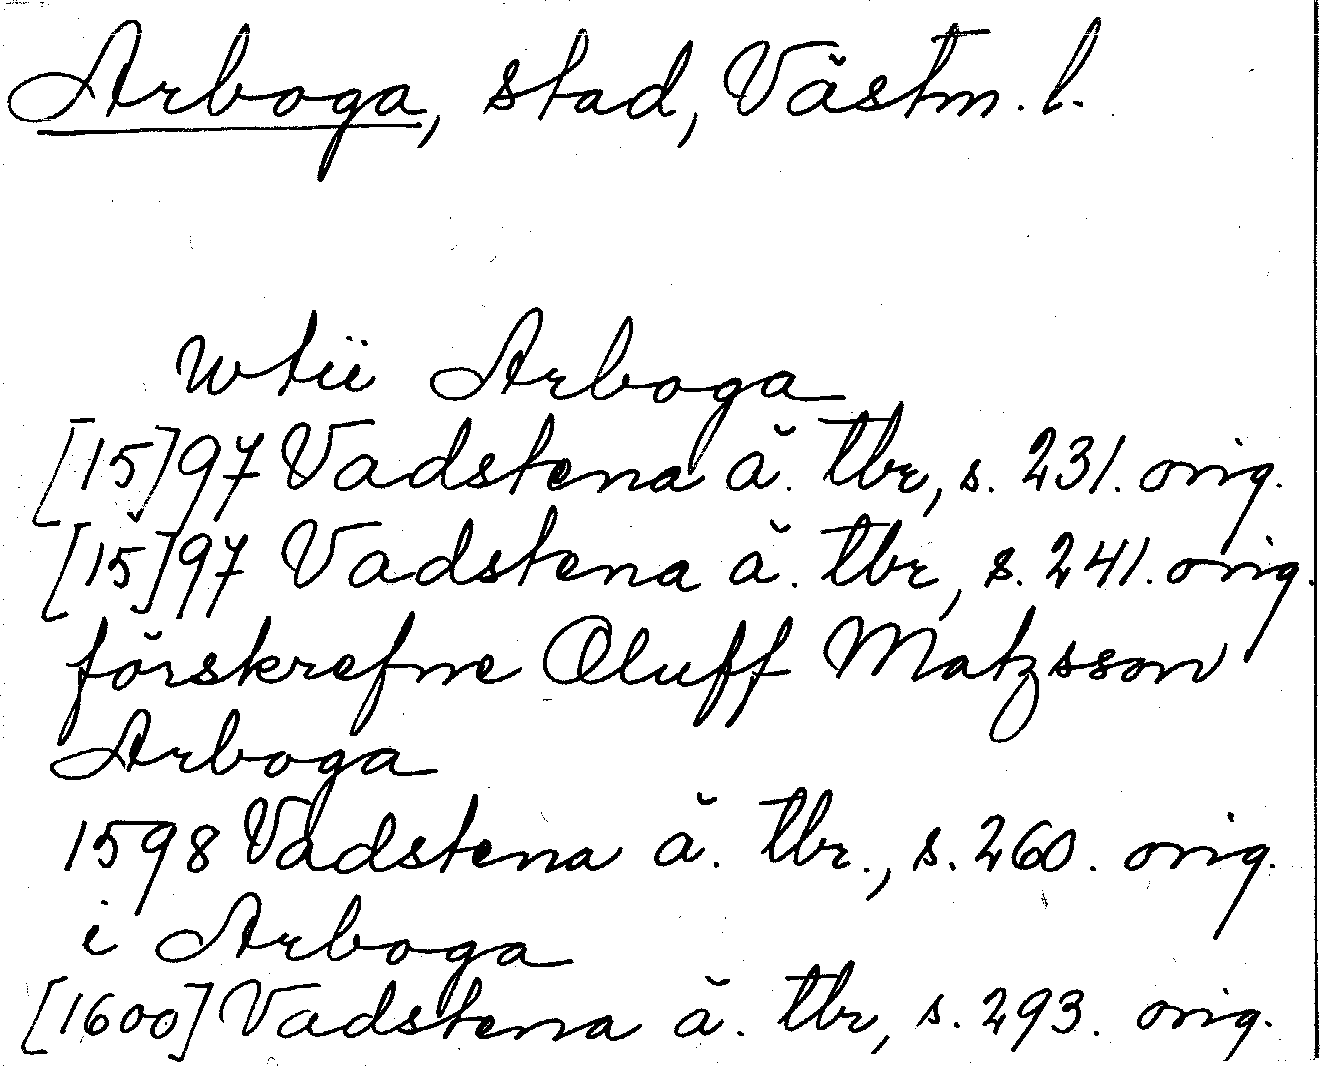 Arboga, stad, Västm. l.
wtii Arboga
[15]97 Vadstena ä. tbr, s. 231. orig.
[15]97 Vadstena ä. tbr, s. 241. orig.
förskrefne Oluff Matzsson
Arboga
1598 Vadstena ä. tbr., s. 260. orig.
i Arboga
[1600] Vadstena ä. tbr, s. 293. orig.